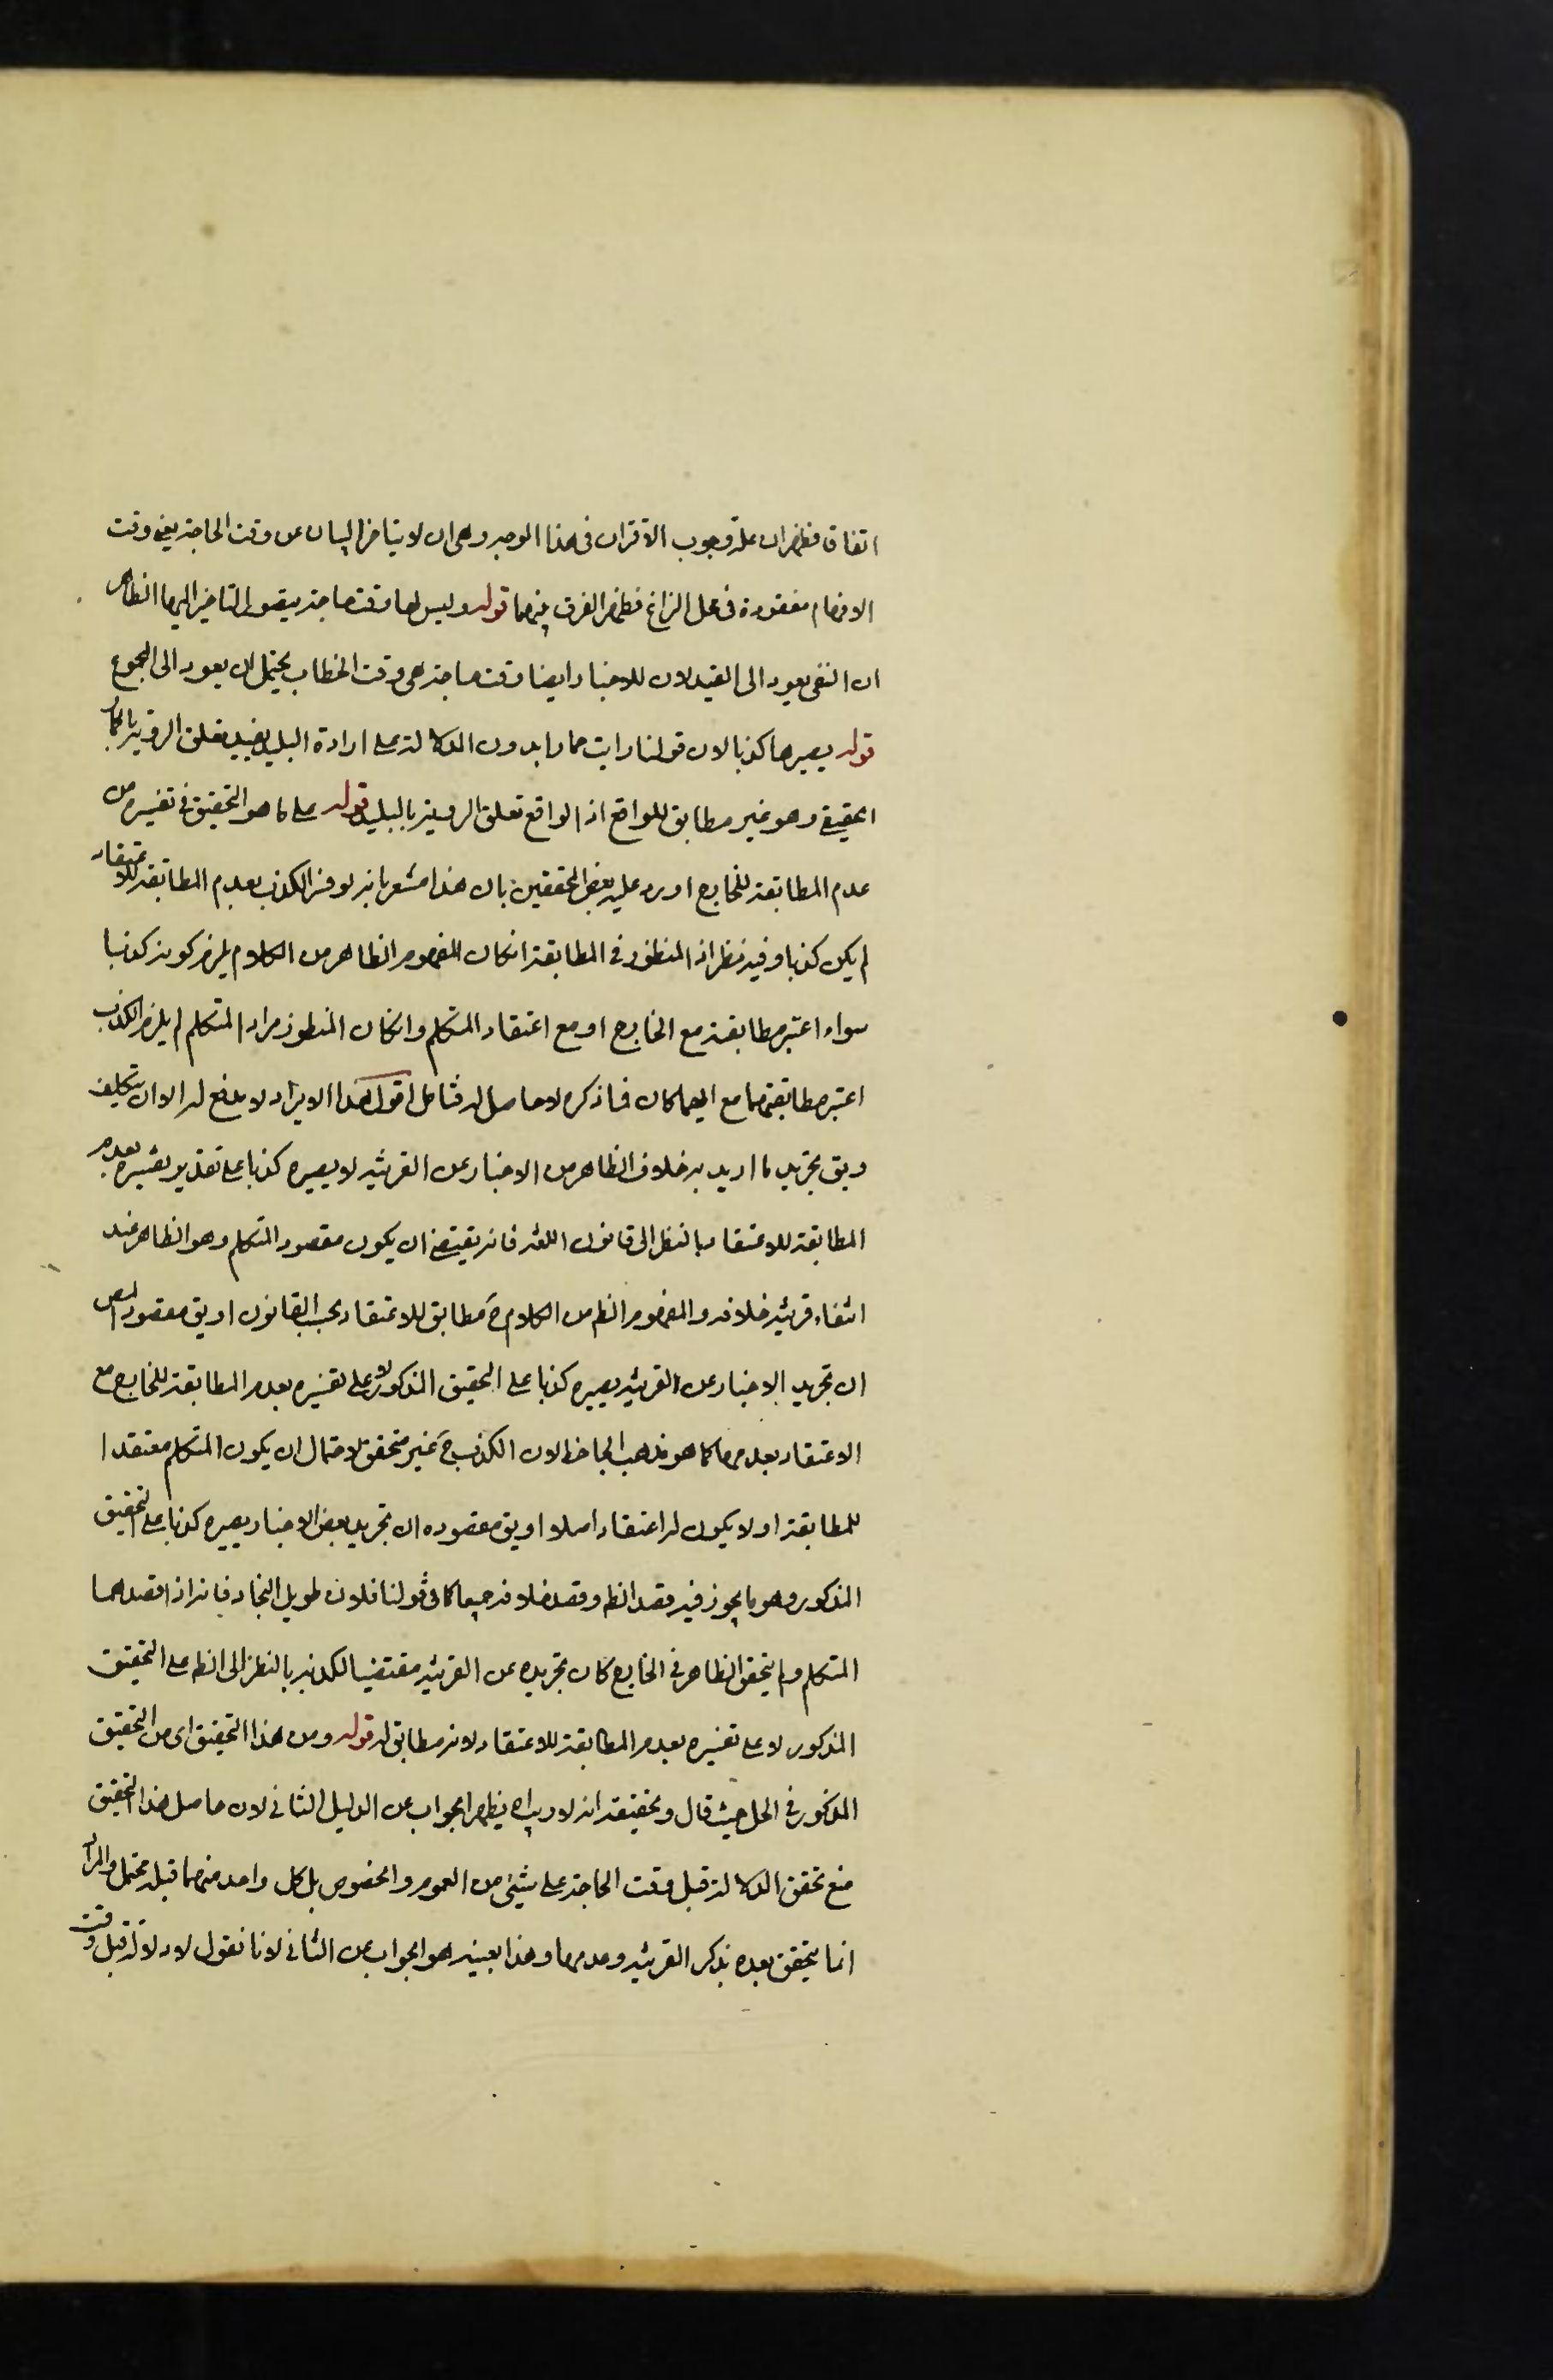 اتفاق فظهر ان علة وجوب الاقتران فى هذا الوجه وهى ان لا يتاخر البيان عن وقت الحاجة يعنى وقت
الافهام مفقودة فى محل النزاع فظهر الفرق بينهما قوله وليس لها وقت حاجة يتصور التاخير اليها الظاهر
ان النفى يعود الى القيد لان للاخبار ايضا وقت حاجة هى وقت الخطاب يحتمل ان يعود الى المجموع
قوله يصيرها كذبا لان قولنا رايت حمارا بدون الدلالة على ارادة البليد يفيد تعلق الروية بالحمار
الحقيقى وهو غير مطابق للواقع اذ الواقع تعلق الروية بالبليد قوله على ما هو التحقيق فى تفسيره من
عدم المطابقة للخارج اورد عليه بعض المحققين بان هذا مشعر بانه لو فسر الكذب بعدم المطابقة للاعتقاد
لم يكن كذبا وفيه نظر اذ المنظور فى المطابقة ان كان المفهوم الظاهر من الكلام يلزم كونه كذبا
سواء اعتبر مطابقته مع الخارج او مع اعتقاد المتكلم وان كان المنظور مراد المتكلم لم يلزم الكذب
اعتبر مطابقتهما مع ايهما كان فما ذكره لا حاصل له فتامل اقول هذا الايراد لا مدفع له الا ان يتكلف
ويق تجريد ما اريد به خلاف الظاهر من الاخبار عن القرينة لا يصيره كذبا على تقدير تفسيره بعدم
المطابقة للاعتقاد بالنظر الى قانون اللغة فانه يقتضى ان يكون مقصود المتكلم وهو الظاهر عند
انتفاء قرينة خلافه والمفهوم الظ من الكلام ح مطابق للاعتقاد بحسب القانون او يق مقصود المص
ان تجريد الاخبار عن القرينة يصيره كذبا على التحقيق المذكور لا على تفسيره بعدم المطابقة للخارج مع
الاعتقاد بعدمها كما هو مذهب الجاحظ لان الكذب ح غير متحقق لاحتمال ان يكون المتكلم معتقدا
للمطابقة او لا يكون له اعتقاد اصلا او يق مقصوده ان تجريد بعض الاخبار يصيره كذبا على التحقيق
المذكور وهو ما يجوز فيه قصد الظ وقصد خلافه جميعا كما فى قولنا فلان طويل النجاد فانه اذا قصدهما
المتكلم ولم يتحقق الظاهر فى الخارج كان تجريده عن القرينة مقتضيا لكذبه بالنظر الى الظ على التحقيق
المذكور لا على تفسيره بعدم المطابقة للاعتقاد لانه مطابق له قوله ومن هذا التحقيق اى من التحقيق
المذكور فى الحل حيث قال وتحقيقه انه لا ريب اه يظهر الجواب عن الدليل الثانى لان حاصل هذا التحقيق
منع تحقق الدلالة قبل وقت الحاجة على شيئ من العموم والخصوص بل كل واحد منهما قبله محتمل والمراد
انما يتحقق بعده بذكر القرينة وعدمها وهذا بعينه هو الجواب عن الثانى لانا نقول لا دلالة قبل وقت